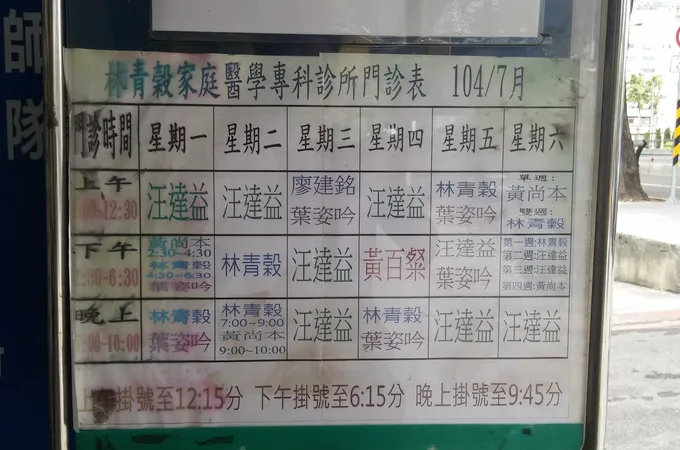 師
隊
林青穀家庭醫學專科診所門診表 104/7月
門診時間 星期一 星期二 星期三 星期四 星期五 星期六
上午 :00-12:30 汪達益 汪達益 廖建銘 葉姿吟 汪達益 林青穀 葉姿吟 單週: 黃尚本 雙週: 林青穀
下午 2:30-6:30 黃尚本 2:30-4:30 林青穀 4:30-6:30 葉姿吟 林青穀 汪達益 黃百粲 汪達益 葉姿吟 第一週:林青穀 第二週:汪達益 第三週:汪達益 第四週:黃尚本
晚上 7:00-10:00 林青穀 葉姿吟 林青穀 7:00~9:00 黃尚本 9:00~10:00 汪達益 林青穀 葉姿吟 汪達益 汪達益
上午掛號至12:15分 下午掛號至6:15分 晚上掛號至9:45分